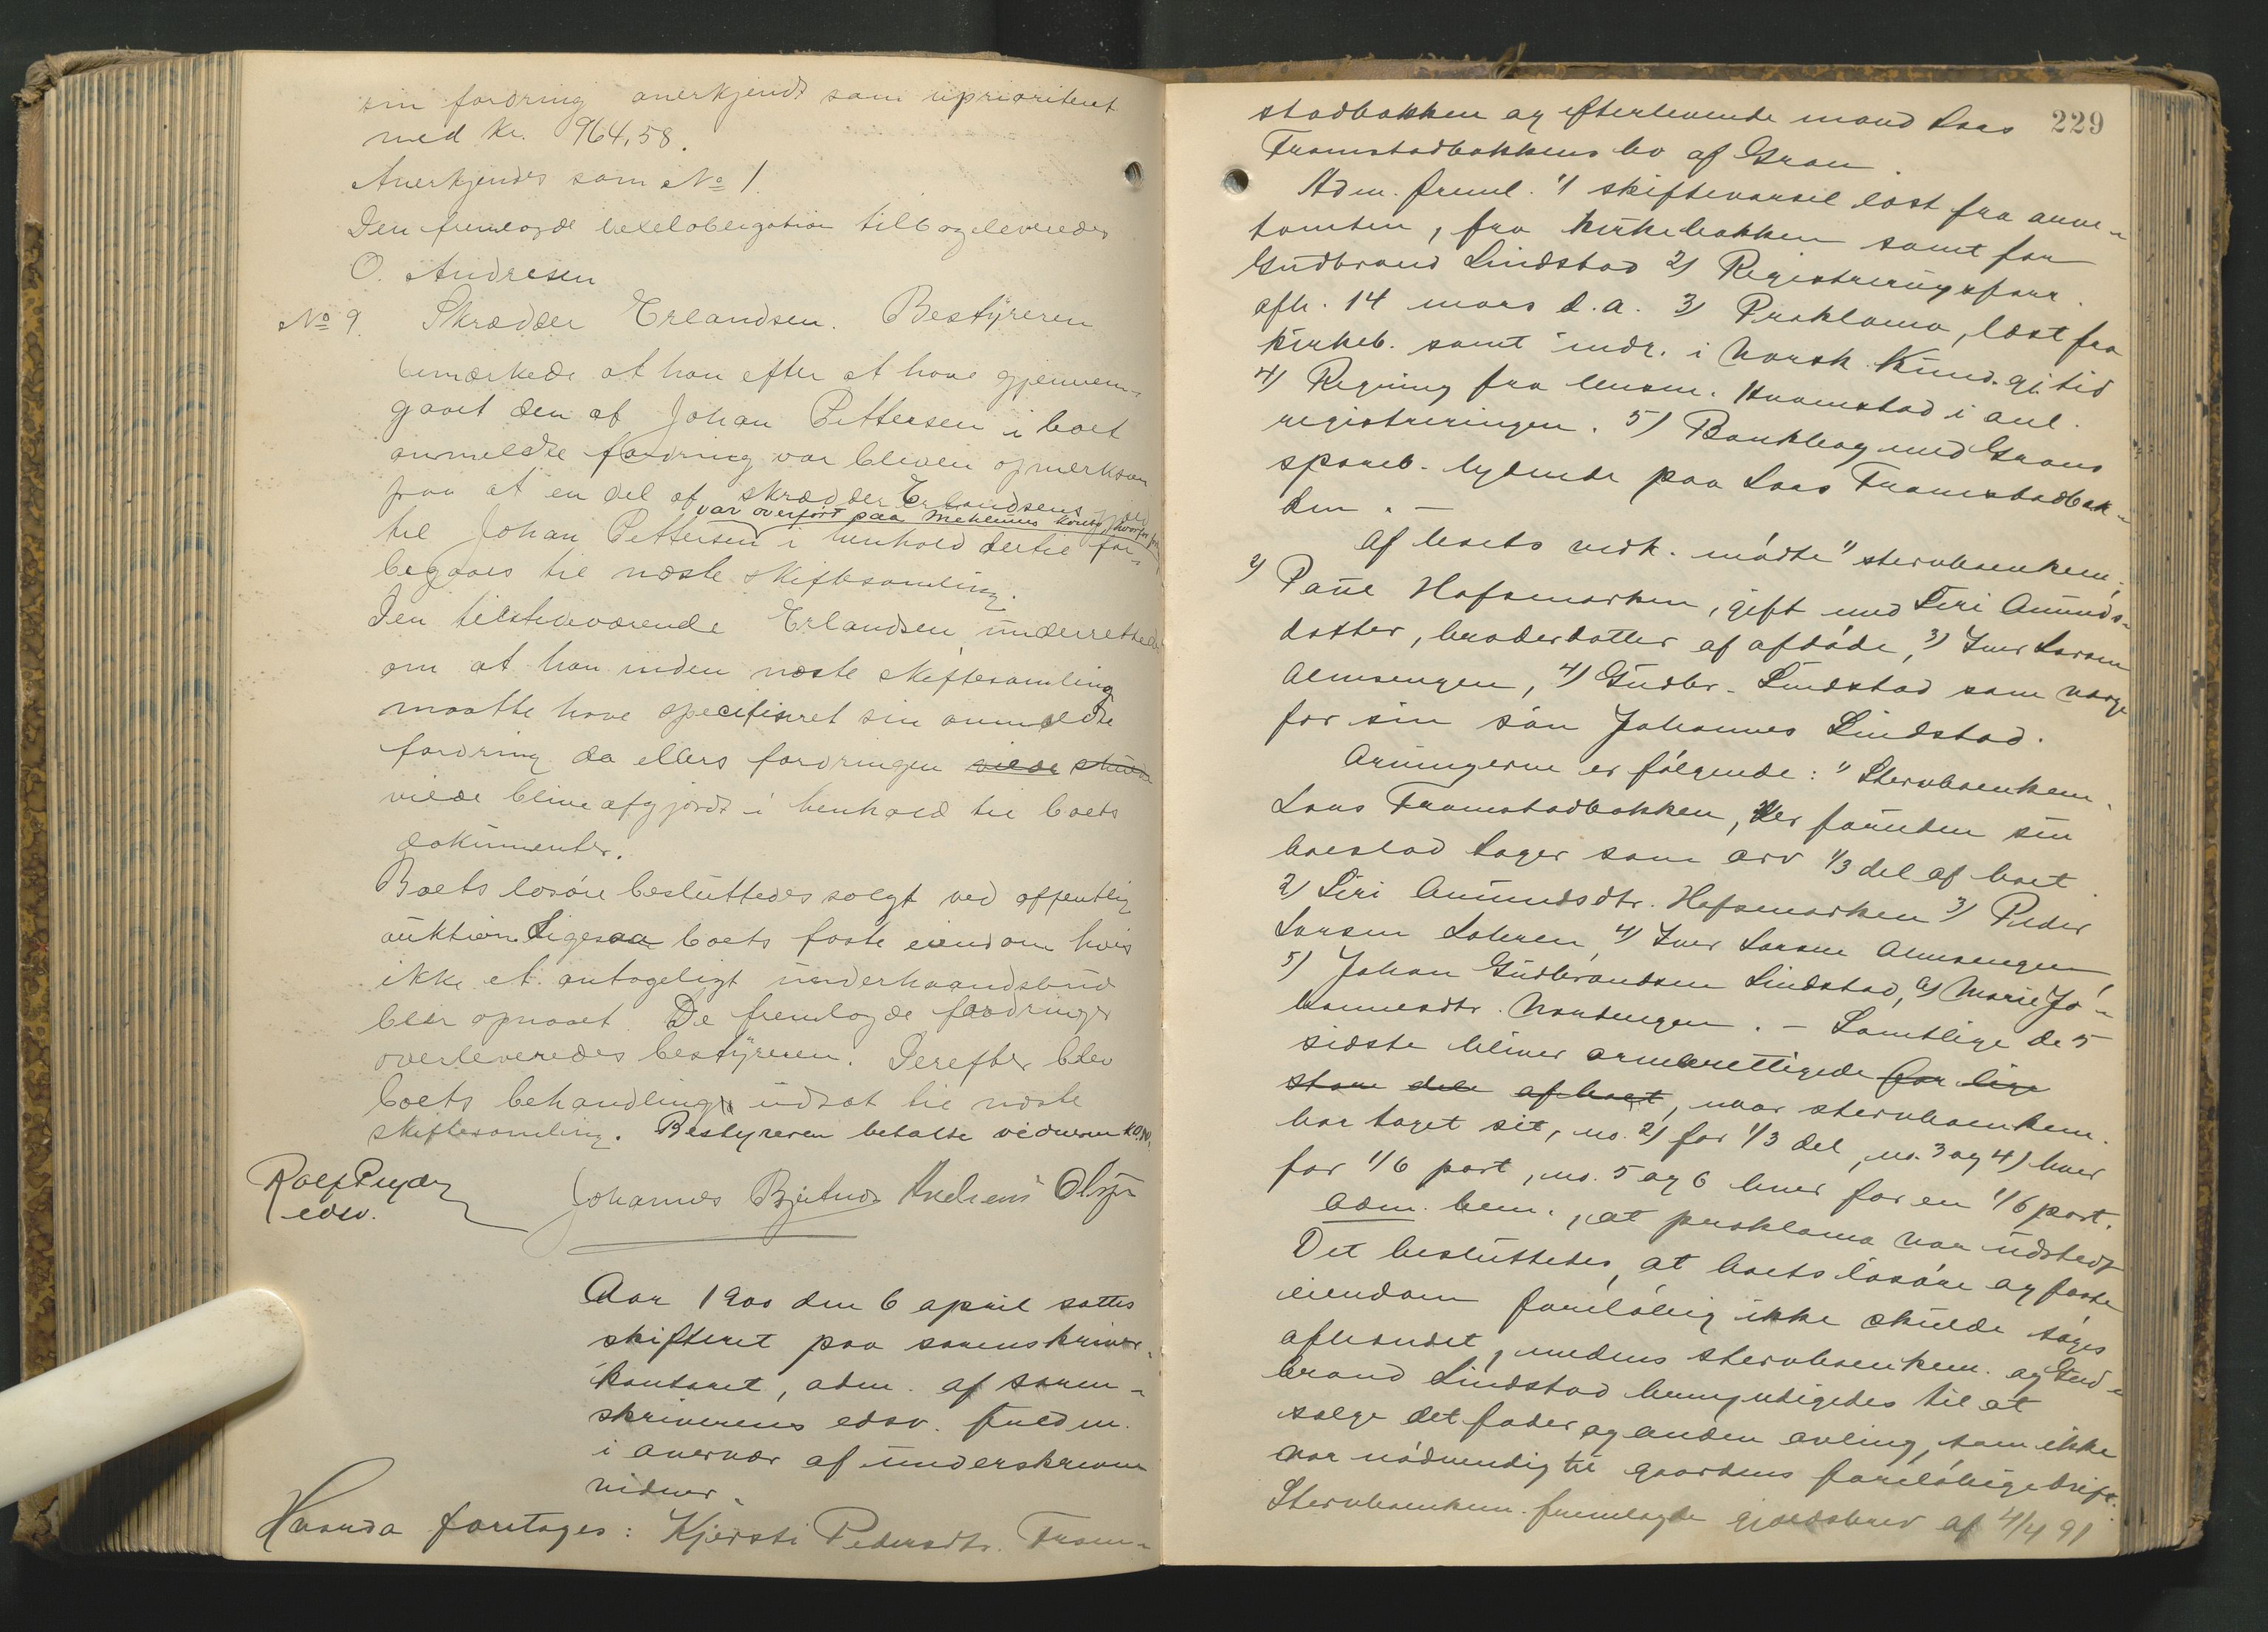 sin fordring anerkjendt som uprioriteret
med kr. 964,58.
Anerkjendes som No 1.
Den fremlagde vexelobligation tilbageleveredes
O. Andresen
No 9. Skrædder Erlandsen. Bestyreren
bemærkede at han efter at have gjennem-
gaaet den af Johan Pettersen i boet
anmeldte fordring var bleven opmerksom
paa at en del af skrædder Erlandsens gjæld
var overført paa konto, hvorfor
til Johan Pettersen i henhold dertil for-
begaaes til næste skiftesamling.
Den tilstedeværende Erlandsen underrettedes
om at han inden næste skiftesamling
maatte have specifiseret sin anmeldte
fordring da ellers fordringen vilde skulde
vilde blive afgjordt i henhold til boets
dokumenter.
Boets løsøre besluttedes solgt ved offentlig
auktion. Ligesaa boets faste eiendom hvis
ikke et antageligt underhaandsbud
blir opnaaet. De fremlagde fordringer
overleveredes bestyreren. Derefter blev
boets behandling udsat til næste
skiftesamling. Bestyreren betalte vidnerne
edsv. Johannes
Aar 1900 den 6 april sattes
skifteret paa sorenskriver-
kontoret, adm. af soren-
skriverens edsv. fuldm.
i overvær af underskrevne
vidner.
Hvorda foretages: Kjersti Pedersdtr. Fram-
229
stadbakken og efterlevende mand Lars
Framstadbakkens bo af Gran.
Adm. freml. 1) skiftevarsel læst fra anne-
tomten, fra kirkebakken samt for
Gudbrand Lindstad 2) Registreringsforr.
afh. 14 mars d.a. 3) Proklama, læst fra
kirkeb. samt indr. i Norsk Kund.gj.tid
4) Regning fra lensm. Hvamstad i anl.
registreringen. 5) Bankbog med Grans
spareb. lydende paa Lars Framstadbak-
ken. -
Af boets vedk. mødte 1) stervboenkem.,
2) Paul Hofsmarken, gift med Siri Amunds-
datter, broderdatter af afdøde, 3) Iver Larsen
Almsengen, 4) Gudbr. Lindstad som værge
for sin søn Johannes Lindstad.
Arvingerne er følgende: 1) Stervboenkem.
Lars Framstadbakken, der foruden sin
boeslod tager som arv 1/3 del af boet.
2) Siri Amundsdtr. Hofsmarken 3) Peder
Larsen Lohren, 4) Iver Larsen Almsengen,
5) Johan Gudbrandsen Lindstad, 6) Marie Jo-
hannesdtr. Nordengen. - Samtlige de 5
sidste bliver arveberettigede for lige
store dele af boet, naar stervboenkem.
har taget sit, no. 2) for 1/3 del, no. 3 og 4) hver
for 1/6 part, no. 5 og 6 hver for en 1/6 part.
Adm. bem., at proklama var udstedt
Det besluttedes, at boets løsøre og faste
eiendom foreløbig ikke skulde søges
afhændet, medens stervboenkem. og Gud-
brand Lindstad bemyndigedes til at
sælge det foder og anden avling, som ikke
var nødvendig til gaardens foreløbige drift.
Stervboenkem. fremlagde gjældsbrev af 4/4 91